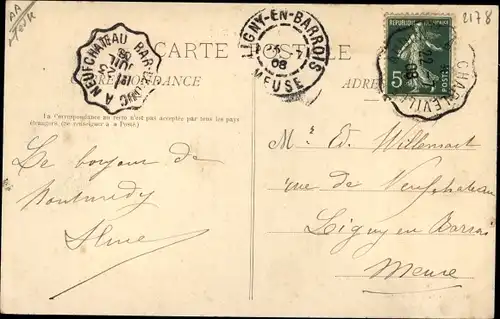 2178
A NEUFCHATEAU BAR-LE-DUC
LIGNY-EN-BARROIS
08
MEUSE
REPUBLIQUE FRANÇAISE
5
POSTES
CHARLEVILLE
08
CARTE POSTALE
CORRESPONDANCE
ADRE
La Correspondance au recto n'est pas acceptée par tous les pays
étrangers. (Se renseigner à la Poste)
Le bonjour de
Mr Ed. Willemart
rue de Neufchateau
Ligny en Barrois
Meuse